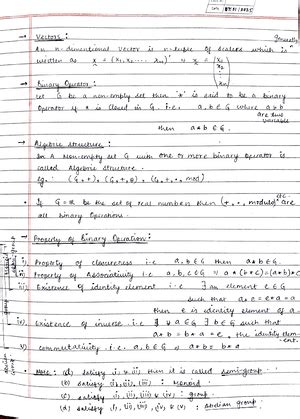 → Vectors :
An n-dimentional vector is n-tuple of scalars which is
written as x = (x₁, x₂, ... xₙ)' or x = (x₁ x₂ ⋮ xₙ)
→ Binary Operator :
Let G be a non-empty set then '*' is said to be a binary
Operator if * is closed in G. i.e. a, b ∈ G where a & b
are two
variable
then a * b ∈ G.
→ Algebric structure :
In A Non-empty set G with one or more binary operator is
called Algebric structure.
eg. :
• If G = R be the set of real numbers then (+, -, modulo) etc are
all binary Operations.
→ Property of Binary Operation :
i) Property of closureness i.e a, b ∈ G then a * b ∈ G.
ii) Property of Associativity i.e a, b, c ∈ G ⇒ a * (b * c) = (a * b) * c
iii) Existence of identity element i.e ∃ an element e ∈ G
such that a * e = e * a = a
then e is identity element of a.
iv) Existence of inverse i.e if ∀ a ∈ G ∃ b ∈ G such that
a * b = b * a = e, the identity element.
v) commutativity i.e. a, b ∈ G ⇒ a * b = b * a
• Note : (a) satisfy i & ii then it is called semi-group.
(b) satisfy i, ii, iii : Monoid
(c) satisfy i, ii, iii & iv : group.
(d) satisfy i, ii, iii, iv & v : abelian group.